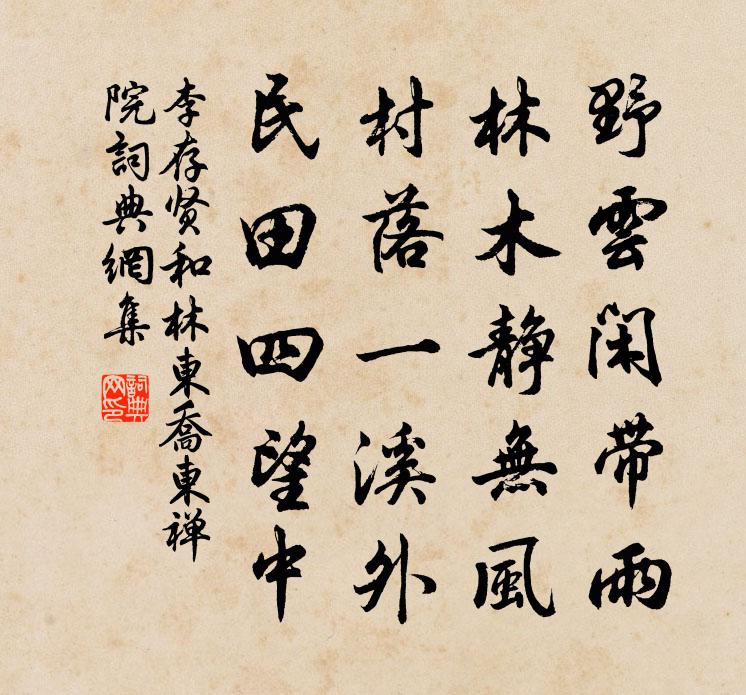 野雲閑帶雨
林木静無風
村落一溪外
民田四望中
李存贤和林東喬東禅
院詞典網集
詞典网印